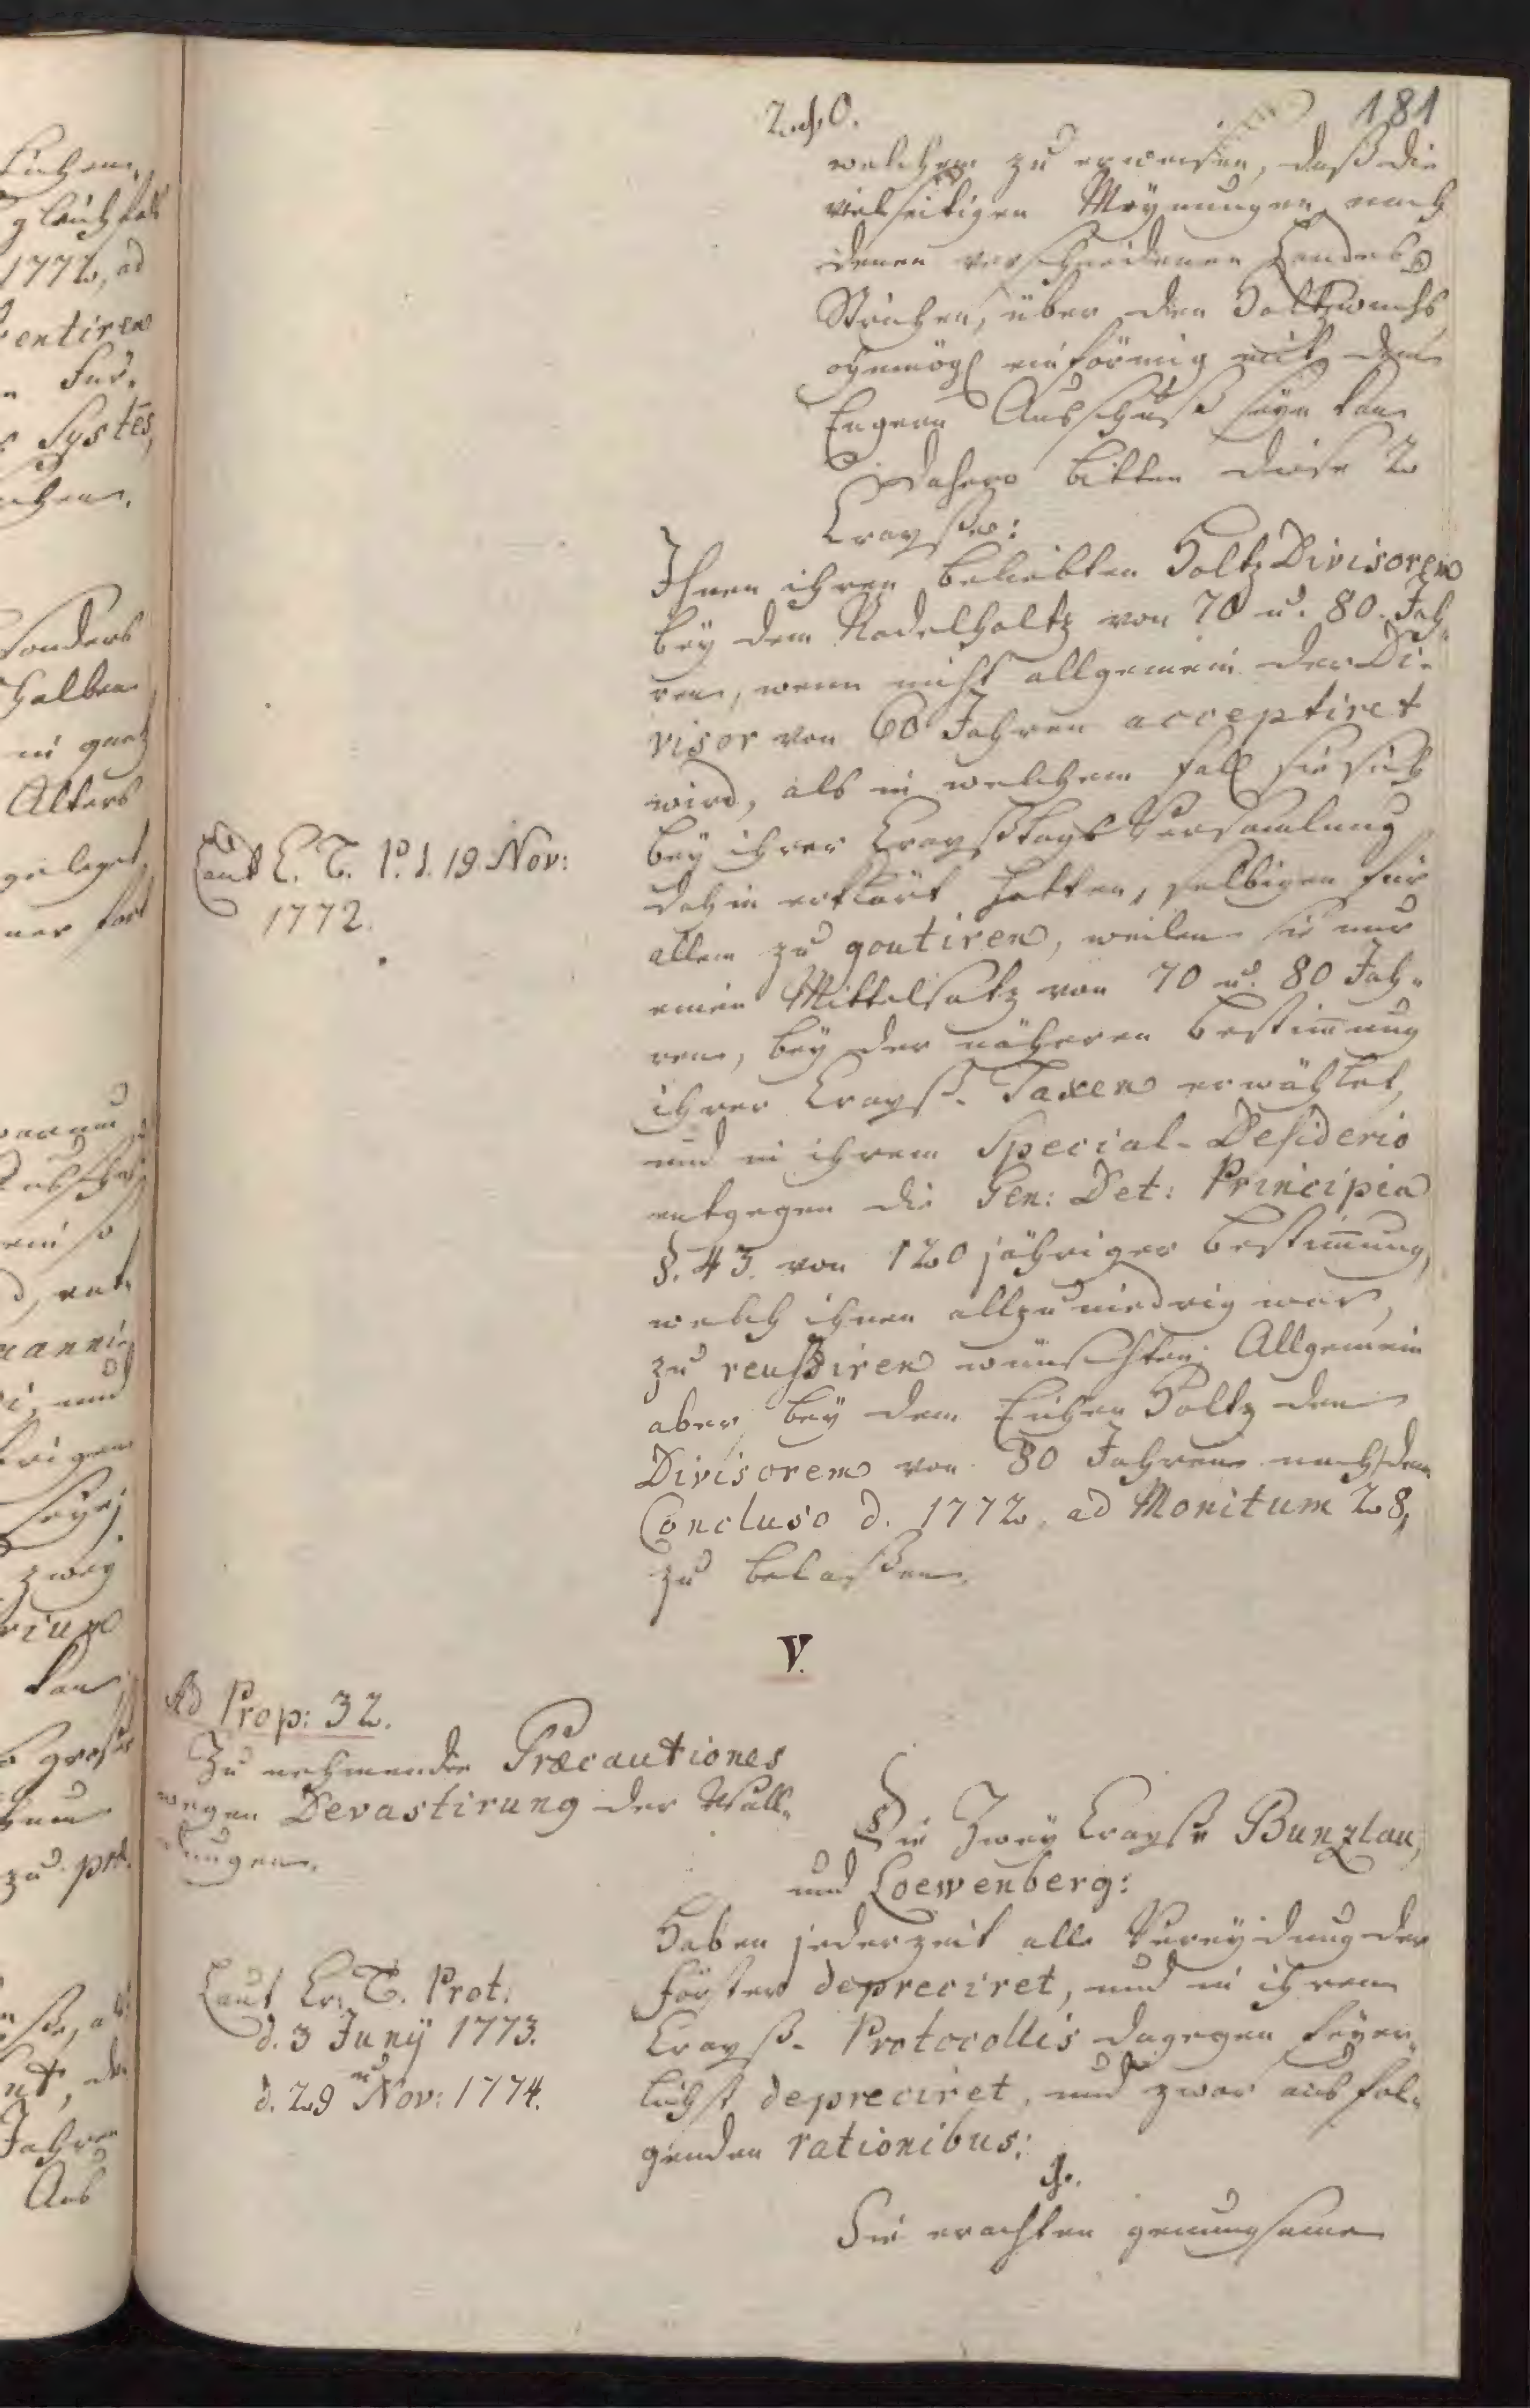 181
welchem zu erweisen, daß die
vielseitigen Meynungen nach
denen verschiedenen Landes
Strichen, über den Holtzwuchs
einförmig mit dem
Engern Ausschuß seyn kan
Dahero bitten diese 2
Crayße:
Ihnen ihren beliebten Holtz Divisorem
bey dem Nadelholtz von 70 u. 80. Jah-
ren, wenn nicht allgemein der Di-
visor von 60 Jahren acceptiret
wird, als in welchem Fall sie sich
bey ihrer Crayßtags Versamlung
dahin erklärt hatten, selbigen für
allen zu goutiren, weilen sie nur
einen Mittelsatz von 70 u. 80 Jah-
ren, bey der näheren Bestimung
ihrer Crayß- Taxen erwählet,
und in ihrem Special-Desiderio
entgegen die Gen: Det: Principia
§. 43. von 120 jähriger Bestimung,
welch ihnen allzu niedrig war,
zu reussiren wünschten. Allgemein
aber bey dem Eichen Holtz den
Divisorem von 80 Jahren nach dem
Concluso d. 1772. ad Monitum 28,
zu belaßen.
Laut C. T. P. d. 19. Nov:
1772.
V.
Ad Prop: 32.
Zu nehmende Præcautiones
wegen Devastirung der Wal-
dungen.
Die Zwey Crayße Bunzlau,
und Loewenberg:
Haben jederzeit alle Vereydung der
Förster depreciret, und in ihren
Crayß- Protocollis dagegen feyer-
lichst depreciret, und zwar aus fol-
genden rationibus:
Laut Cr: T. Prot:
d. 3 Juny 1773.
u
d. 29 Nov: 1774.
1.
Sie erachten genungsame